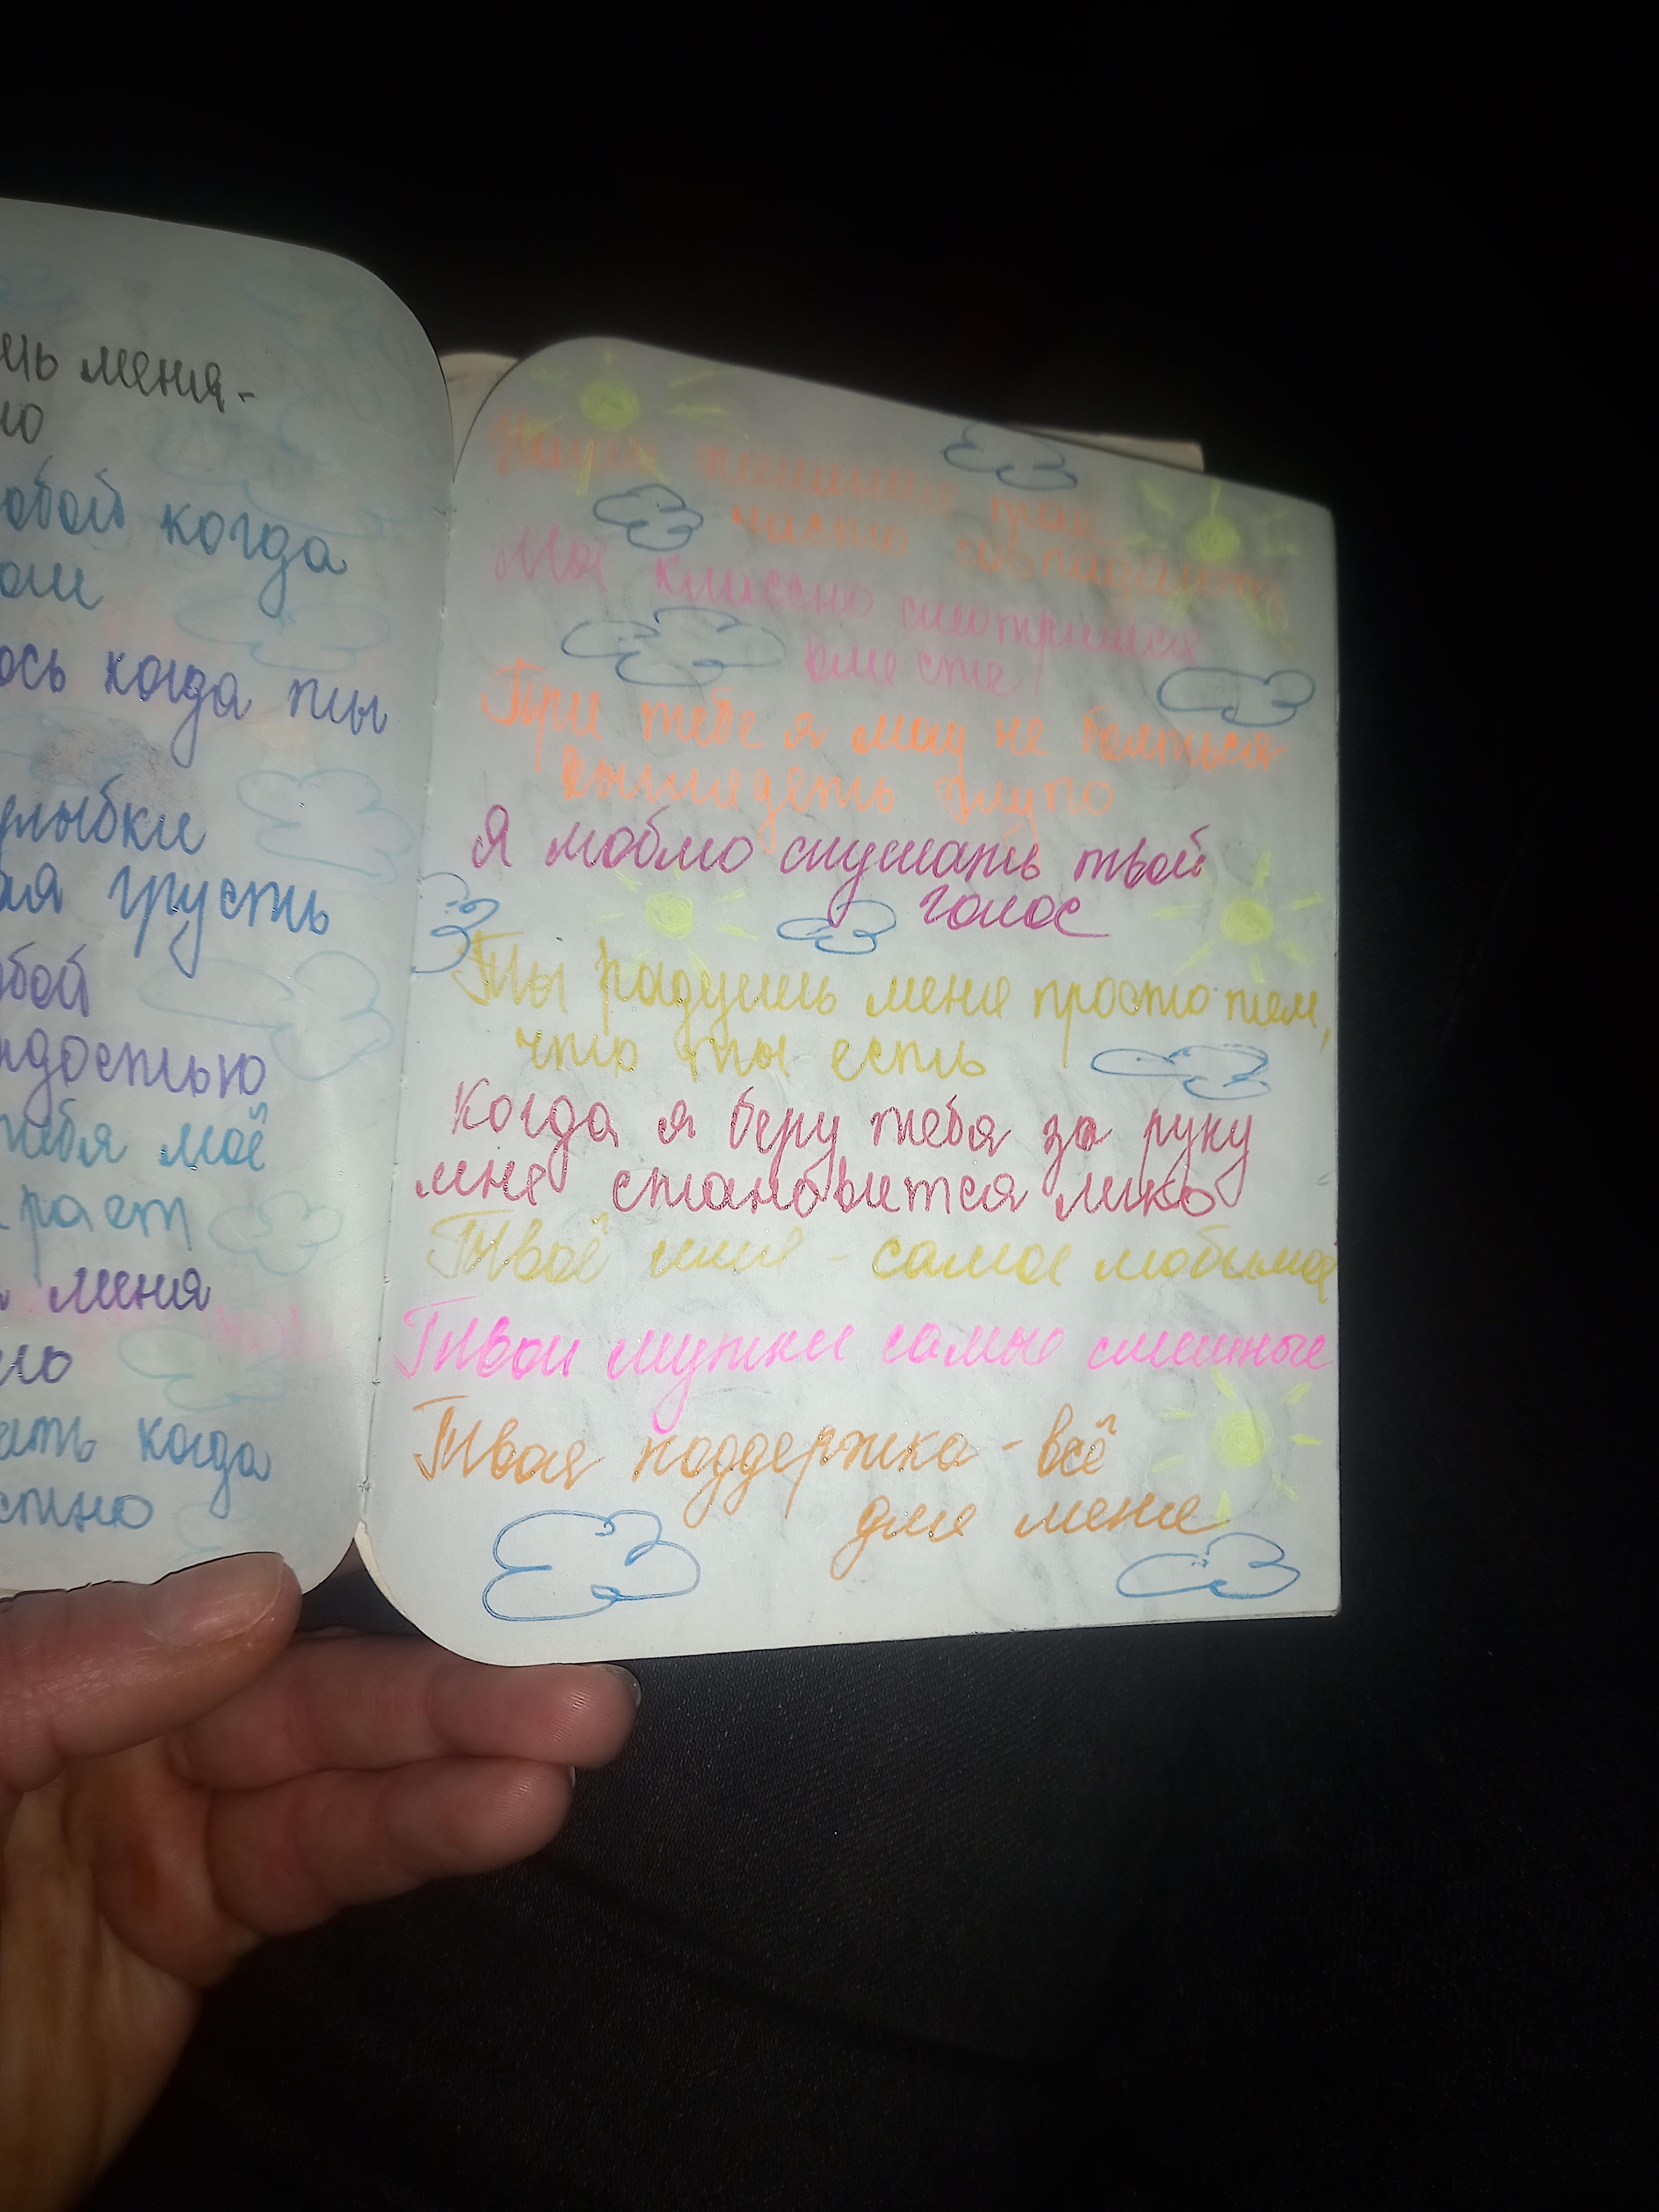 шь меня-
но
обой когда
ом
ось когда ты
улыбки
ая грусть
обой
адостью
тебя моё
рает
меня
ло
ать когда
стно
Наши
часто совпадают
Мы классно смотримся
вместе!
При тебе я могу не бояться
выглядеть глупо
Я люблю слушать твой
голос
Ты радуешь меня просто тем,
что ты есть
Когда я беру тебя за руку
мне становится легко
Твоё имя - самое любимое
Твои шутки самые смешные
Твоя поддержка - всё
для меня